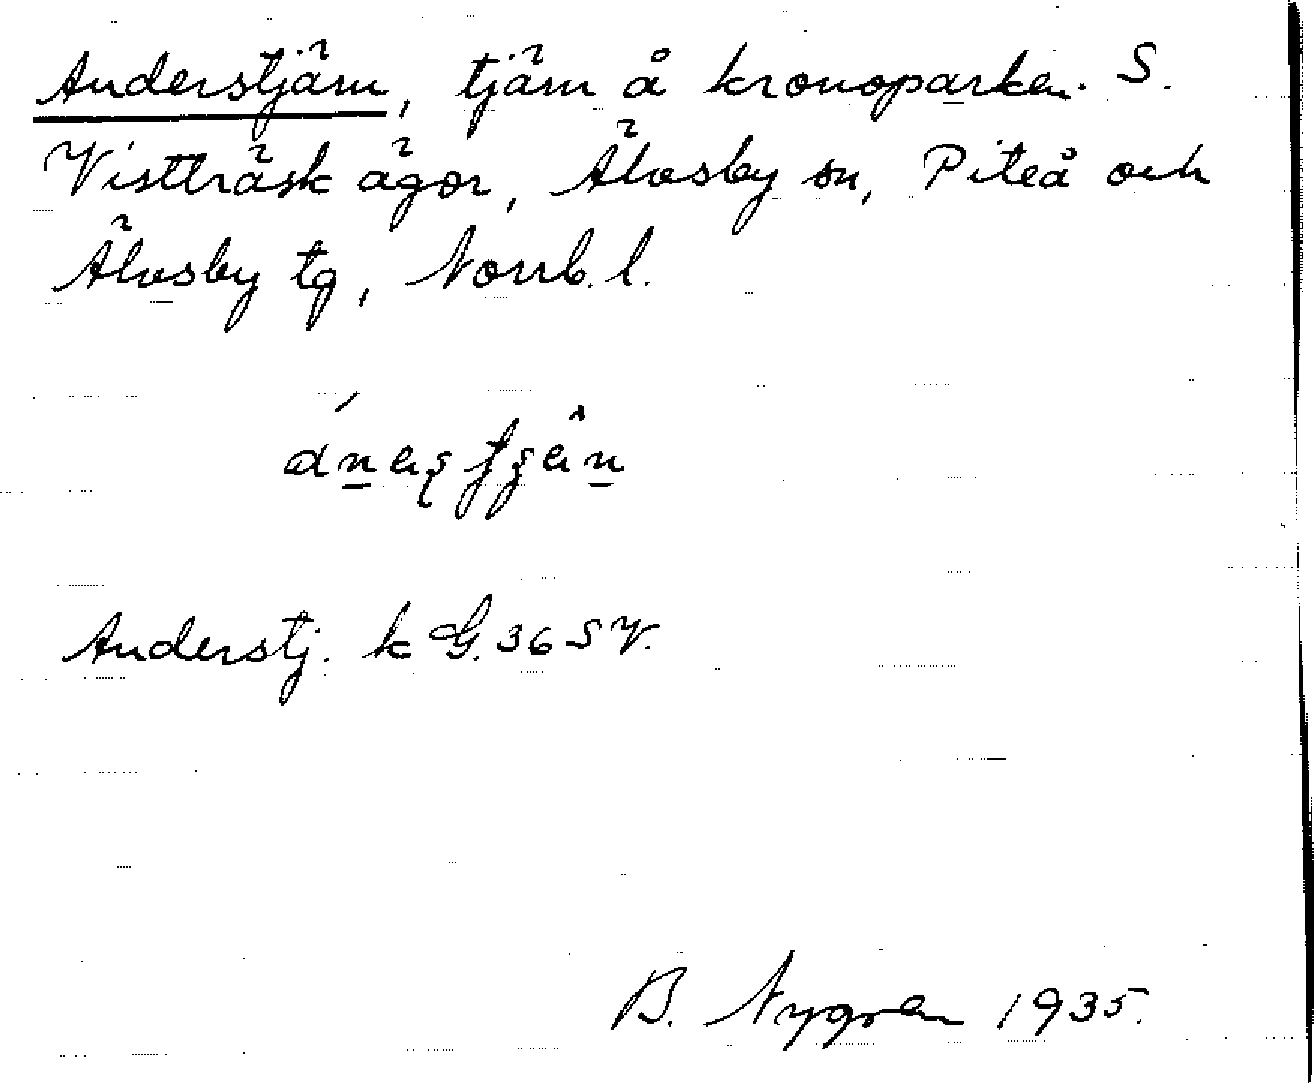 Anderstjärn, tjärn å kronoparken. S.
Vistträsk ägor, Älvsby sn, Piteå och
Älvsby tg, Norrb. l.
Anderstj. k G. 36 SV.
B. Nygren 1935.